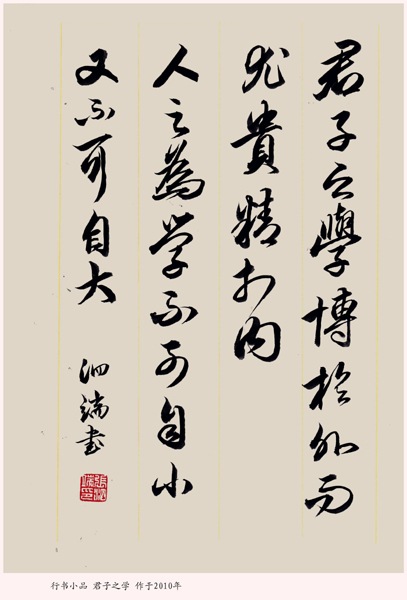 君子之學博於外而
尤貴精於内
人之為学不可自小
又不可自大
泗端书
行书小品 君子之学 作于2010年